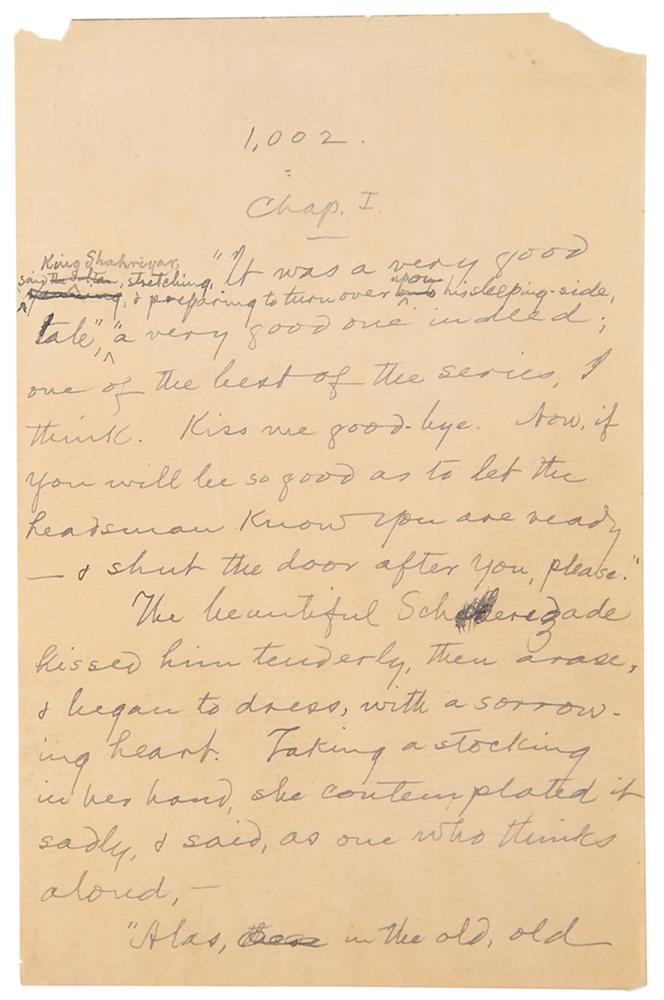 1,002.
Chap. I.
"It was a very good
King Shahriyar,
said the Sultan, stretching,
yawning, & preparing to turn over upon his sleeping-side,
tale", "a very good one indeed;
one of the best of the series, I
think. Kiss me good-bye. Now, if
you will be so good as to let the
headsman know you are ready
— & shut the door after you, please."
The beautiful Scheherezade
kissed him tenderly, then arose,
& began to dress, with a sorrow-
ing heart. Taking a stocking
in her hand, she contemplated it
sadly, & said, as one who thinks
aloud, —
"Alas, in the old, old